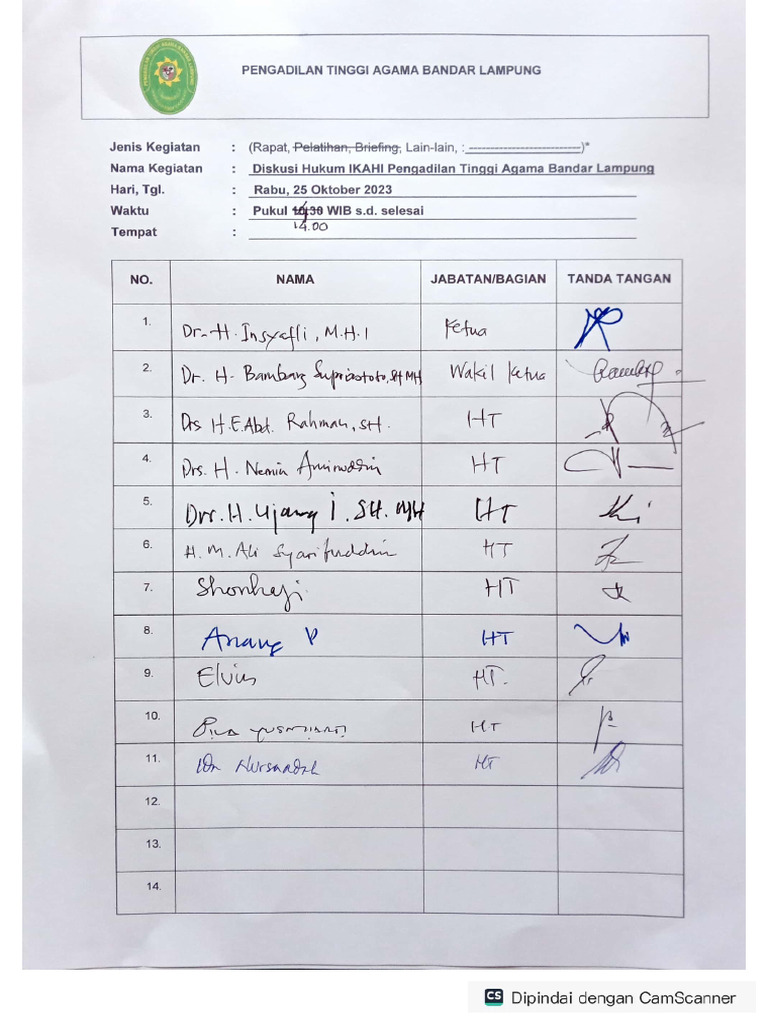 PENGADILAN TINGGI AGAMA BANDAR LAMPUNG
Jenis Kegiatan : (Rapat, Pelatihan, Briefing, Lain-lain, : ---------------------------)*
Nama Kegiatan : Diskusi Hukum IKAHI Pengadilan Tinggi Agama Bandar Lampung
Hari, Tgl. : Rabu, 25 Oktober 2023
Waktu : Pukul 10.30 WIB s.d. selesai
14.00
Tempat :
NO. NAMA JABATAN/BAGIAN TANDA TANGAN
1. Dr. H. Insyafli, M.H.I Ketua
2. Dr. H. Bambang Supriastoto, SH MH Wakil Ketua
3. Drs H.E.Abd. Rahman, SH. HT
4. Drs. H. Nemin Aminuddin HT
5. Drs. H. Ujang J. SH. MH HT
6. H. M. Ali Syarifuddin HT
7. Shonhaji HT
8. Anang P HT
9. Elvin HT.
10. HT
11. HT
12.
13.
14.
CS Dipindai dengan CamScanner